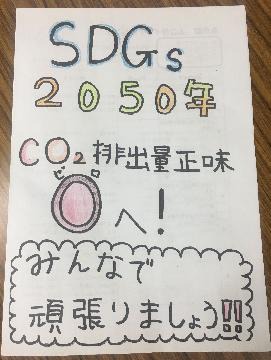 SDGs
2050年
CO₂排出量正味
ゼロ
0へ!
みんなで
頑張りましょう!!